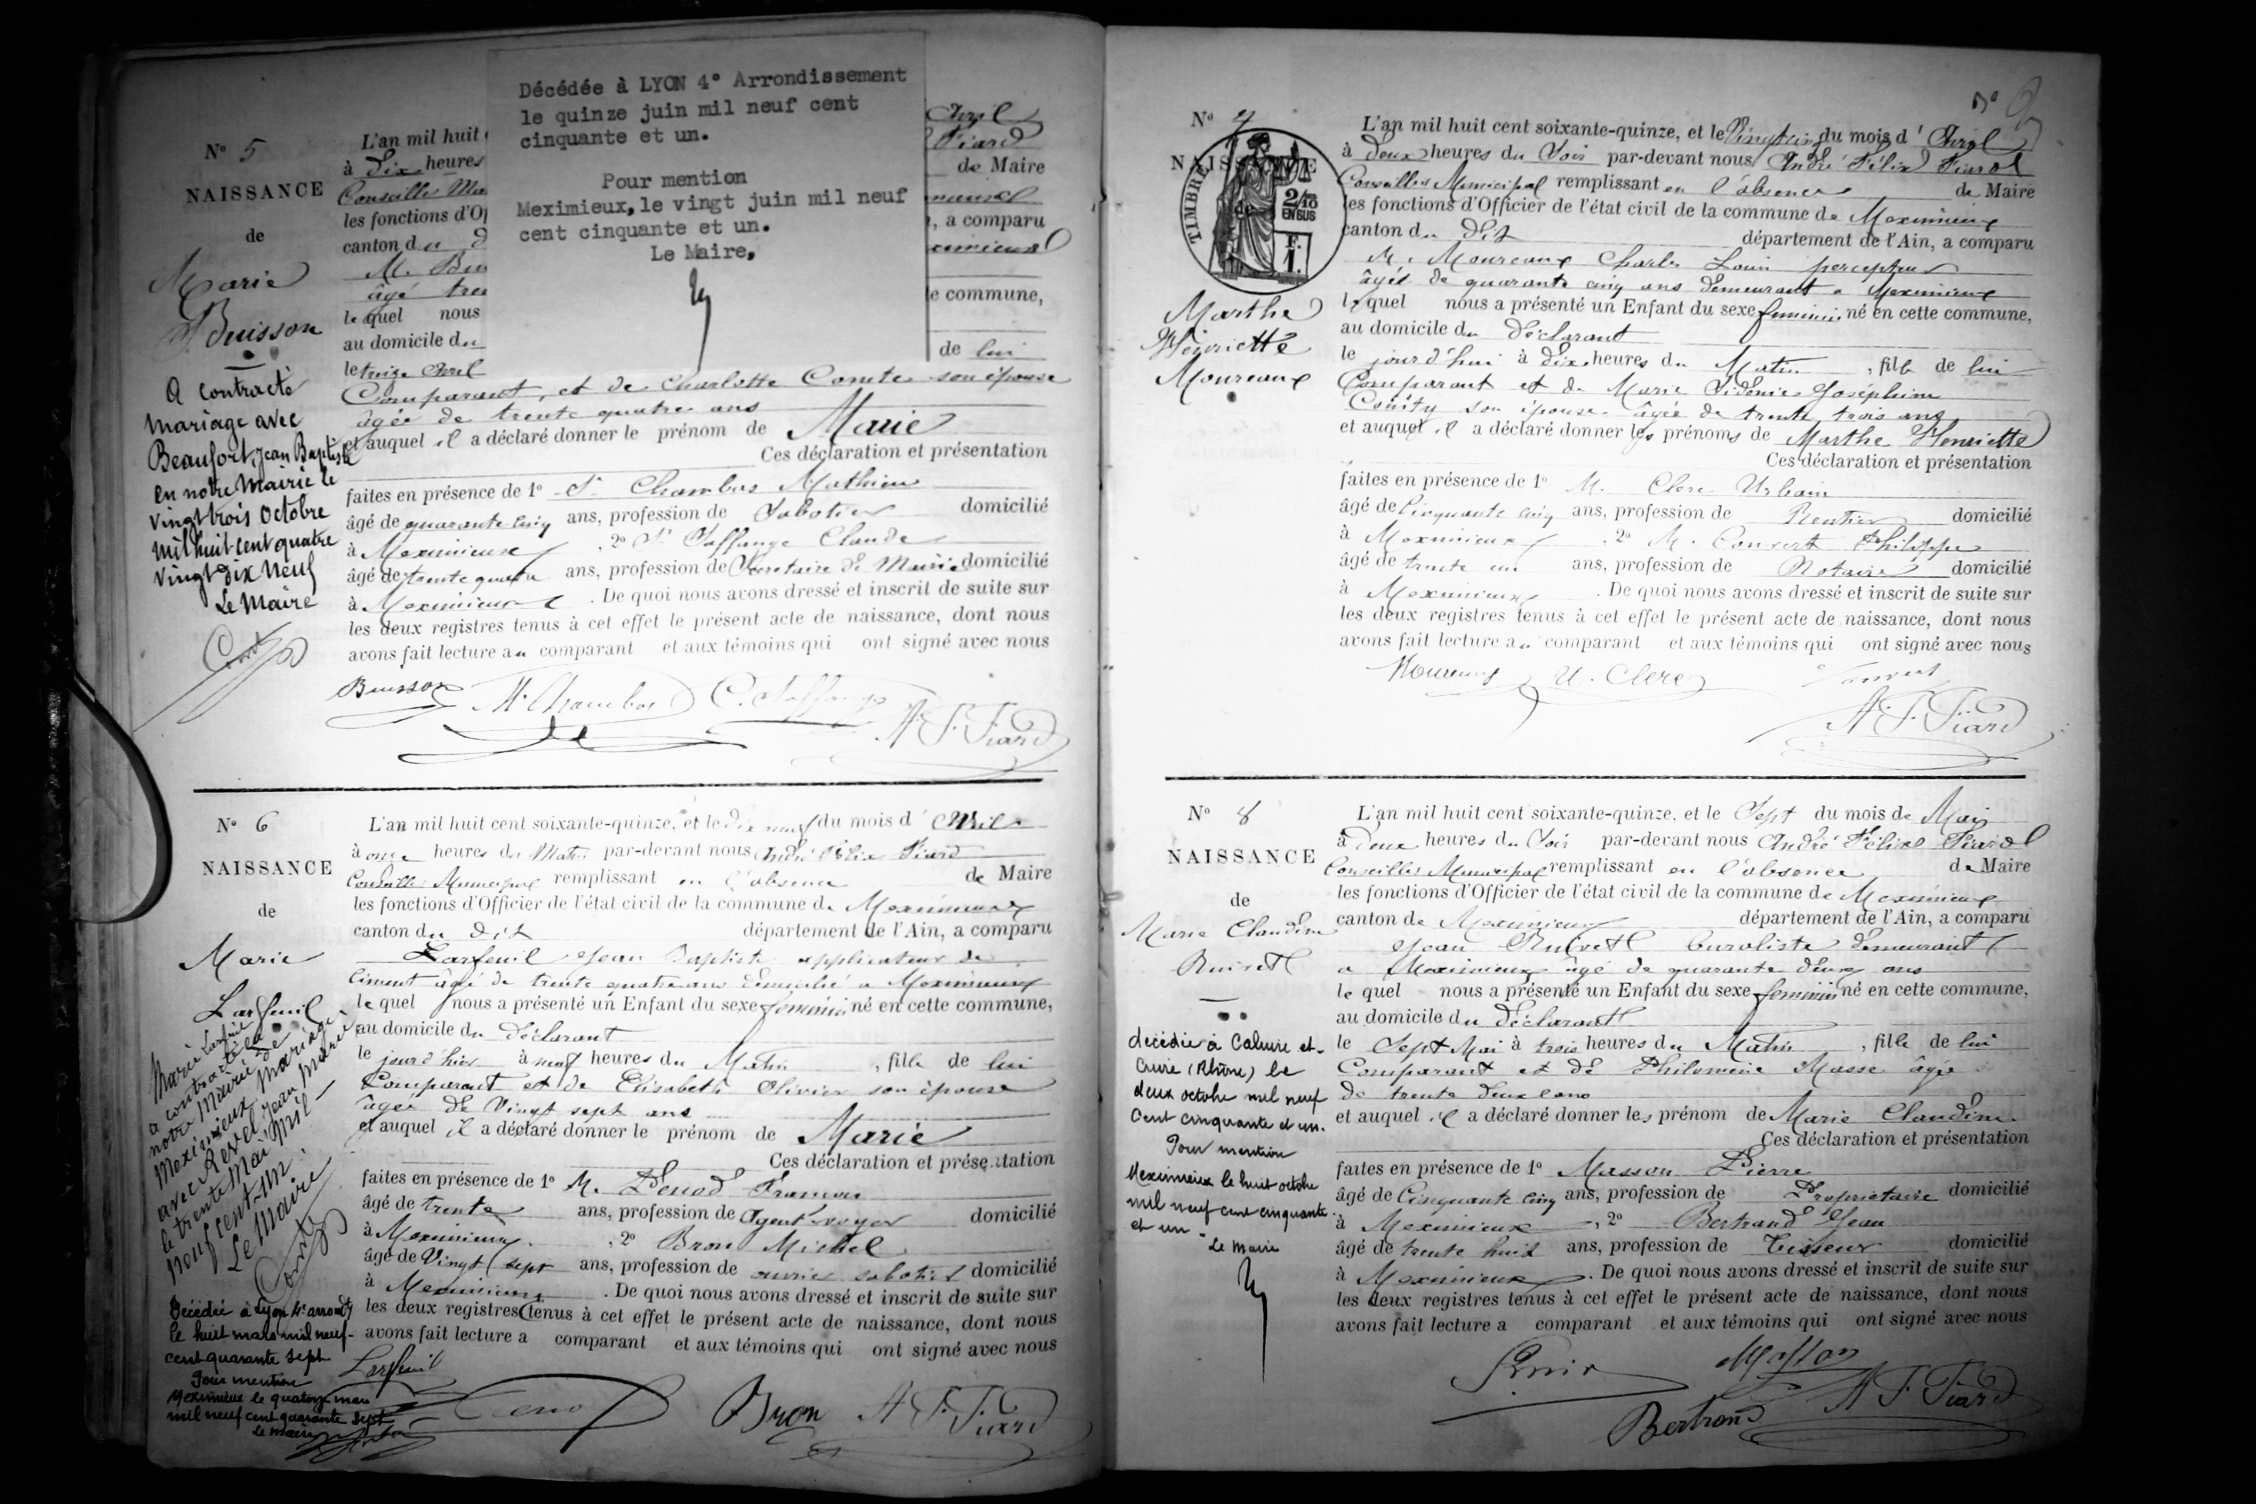 Décédée à LYON 4° Arrondissement
le quinze juin mil neuf cent
cinquante et un.
Pour mention
Meximieux, le vingt juin mil neuf
cent cinquante et un.
Le Maire,
N° 5
NAISSANCE
de
Marie
Buisson
A contracté
mariage avec
Beaufort, Jean Baptiste
en notre Mairie le
vingt trois Octobre
mil huit cent quatre
vingt dix neuf
Le Maire
L'an mil huit
Avril
à dix heures
Piard
Conseiller Mu
de Maire
les fonctions d'Of
canton du d
, a comparu
M. Bu
âgé tre
le quel nous
e commune,
au domicile du
le treize Avril
de lui
Comparant, et de Charlotte Comte son épouse
âgée de trente quatre ans
et auquel il a déclaré donner le prénom de Marie
Ces déclaration et présentation
faites en présence de 1° Sr Chambos Mathieu
âgé de quarante cinq ans, profession de Sabotier domicilié
à Meximieux, 2° Sr Saffange Claude
âgé de trente quatre ans, profession de Secrétaire de Mairie domicilié
à Meximieux. De quoi nous avons dressé et inscrit de suite sur
les deux registres tenus à cet effet le présent acte de naissance, dont nous
avons fait lecture au comparant et aux témoins qui ont signé avec nous
Buisson M. Chambos C. Saffange
A. F. Piard
N° 6
NAISSANCE
de
Marie
Larfeuil
Marie Larfeuil
a contracté à
notre Mairie de
Meximieux Mariage
avec Revel, Jean Marie
le trente Mai Mil
neuf cent un.
Le Maire
Décédée à Lyon 4e arrondt
le huit mars mil neuf
cent quarante sept
Pour mention
Meximieux le quatorze mars
mil neuf cent quarante sept
Le maire
L'an mil huit cent soixante-quinze, et le dix neuf du mois d'Avril
à onze heures du Matin par-devant nous André Félix Piard
Conseiller Municipal remplissant en l'absence de Maire
les fonctions d'Officier de l'état civil de la commune de Meximieux
canton du dit département de l'Ain, a comparu
Larfeuil Jean Baptiste applicateur de
ciment âgé de trente quatre ans domicilié à Meximieux
le quel nous a présenté un Enfant du sexe féminin né en cette commune,
au domicile du déclarant
le jour d'hier à neuf heures du Matin, fille de lui
Comparant et de Elisabeth Olivier son épouse
âgée de Vingt sept ans
et auquel il a déclaré donner le prénom de Marie
Ces déclaration et présentation
faites en présence de 1° M. Penod François
âgé de trente ans, profession de Agent voyer domicilié
à Meximieux, 2° Bron Michel
âgé de Vingt sept ans, profession de ouvrier sabotier domicilié
à Meximieux. De quoi nous avons dressé et inscrit de suite sur
les deux registres tenus à cet effet le présent acte de naissance, dont nous
avons fait lecture a comparant et aux témoins qui ont signé avec nous
Larfeuil
Penod Bron A. F. Piard
N° 7
NAISSANCE
TIMBRE
de
2/10
EN SUS
F.
1.
Marthe
Henriette
Moureaux
L'an mil huit cent soixante-quinze, et le Vingt six du mois d'Avril
à deux heures du Soir par-devant nous André Félix Piard
Conseiller Municipal remplissant en l'absence de Maire
les fonctions d'Officier de l'état civil de la commune de Meximieux
canton du dit département de l'Ain, a comparu
M. Moureaux Charles Louis percepteur
âgé de quarante cinq ans demeurant à Meximieux
le quel nous a présenté un Enfant du sexe féminin né en cette commune,
au domicile du déclarant
le jour d'hui à dix heures du Matin, fille de lui
Comparant et de Marie Sidonie Joséphine
son épouse âgée de trente trois ans
et auquel il a déclaré donner les prénoms de Marthe Henriette
Ces déclaration et présentation
faites en présence de 1° M. Clerc Urbain
âgé de Cinquante cinq ans, profession de Rentier domicilié
à Meximieux, 2° M. Convert Philippe
âgé de trente un ans, profession de Notaire domicilié
à Meximieux. De quoi nous avons dressé et inscrit de suite sur
les deux registres tenus à cet effet le présent acte de naissance, dont nous
avons fait lecture au comparant et aux témoins qui ont signé avec nous
Moureaux U. Clerc Convert
A. F. Piard
N° 8
NAISSANCE
de
Marie Claudine
décédée à Caluire et
Cuire (Rhône) le
deux octobre mil neuf
cent cinquante et un.
Pour mention
Meximieux le huit octobre
mil neuf cent cinquante
et un.
Le Maire
L'an mil huit cent soixante-quinze, et le Sept du mois de Mai
à deux heures du Soir par-devant nous André Félix Piard
Conseiller Municipal remplissant en l'absence de Maire
les fonctions d'Officier de l'état civil de la commune de Meximieux
canton de Meximieux département de l'Ain, a comparu
Jean buraliste demeurant
à Meximieux âgé de quarante deux ans
le quel nous a présenté un Enfant du sexe féminin né en cette commune,
au domicile du déclarant
le Sept Mai à trois heures du Matin, fille de lui
Comparant et de Philomène Masse âgée
de trente deux ans
et auquel il a déclaré donner les prénom de Marie Claudine
Ces déclaration et présentation
faites en présence de 1° Masson Pierre
âgé de Cinquante cinq ans, profession de Propriétaire domicilié
à Meximieux, 2° Bertrand Jean
âgé de trente huit ans, profession de Tisseur domicilié
à Meximieux. De quoi nous avons dressé et inscrit de suite sur
les deux registres tenus à cet effet le présent acte de naissance, dont nous
avons fait lecture a comparant et aux témoins qui ont signé avec nous
Masson
Bertrand A F Piard